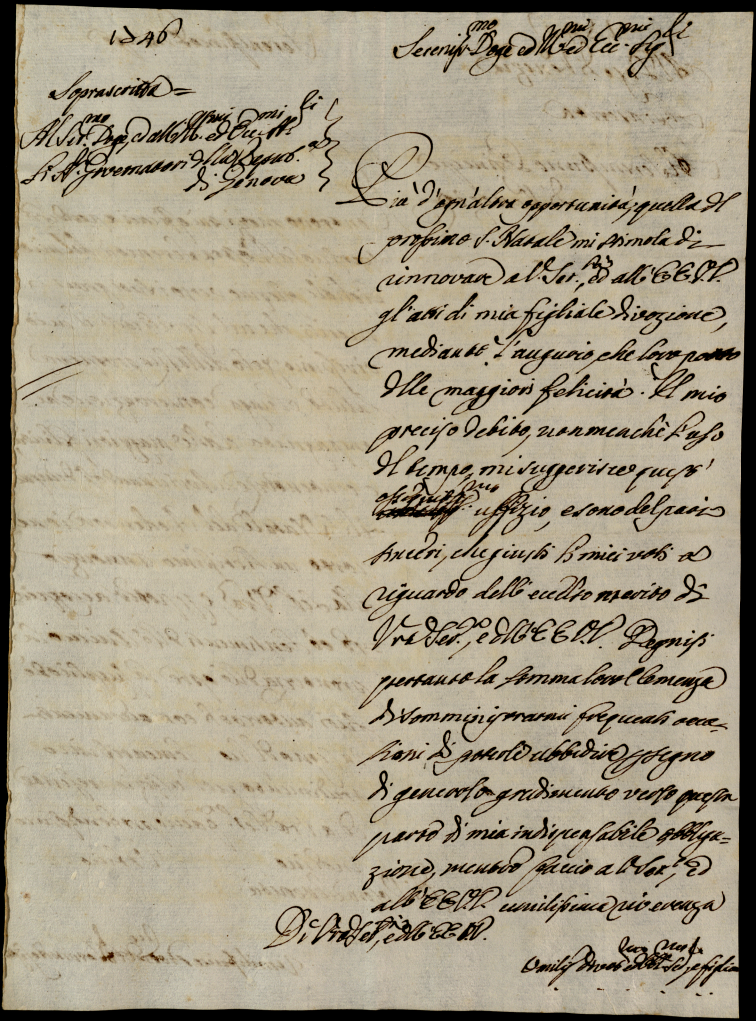 1746
Seren.mo Doge ed Ill.mi ed Ecc.mi Sig.ri
Soprascritta =
Al Ser.mo Doge, ed all' Ill.mi ed Ecc.mi SS.ri
Li SS.ri Governatori della Repub.ca
di Genova
Più d'ogn'altra opportunità, quella del
prossimo S. Natale mi stimola di
rinnovare a V. Ser.tà, ed all' EE.VV.
gl'atti di mia figliale divozione,
mediante l'augurio, che loro porto
delle maggiori felicità. Il mio
preciso debito, non menchè l'uso
del tempo, mi suggerisce quest'
ossequiosiss.mo uffizio, e sono del pari
sinceri, che giusti li miei voti a
riguardo dell' eccelso merito di
Vra Ser.tà, e dell' EE.VV. Degnisi
pertanto la somma loro Clemenza
di somministrarmi frequenti occa-
sioni di poterle ubbidire in segno
di generoso gradimento verso questa
parte di mia indispensabile obbliga-
zione, mentre faccio a V. Ser.tà, ed
all' EE.VV. umilissima riverenza
Di Vra Ser.tà, e dell' EE.VV.
Umiliss. Divot.mo ed Obl.mo Se.re, e figlio